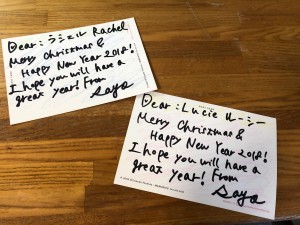 Dear: ラシェル Rachel
Merry Christmas &
Happy New Year 2018!
I hope you will have a
great year! From
Saya
Dear: Lucie ルーシー
Merry Christmas &
Happy New Year 2018!
I hope you will have a
great year! From
Saya